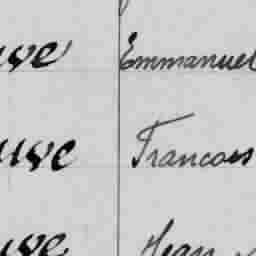 uve Emmanuel
uve Francois
uve Jean